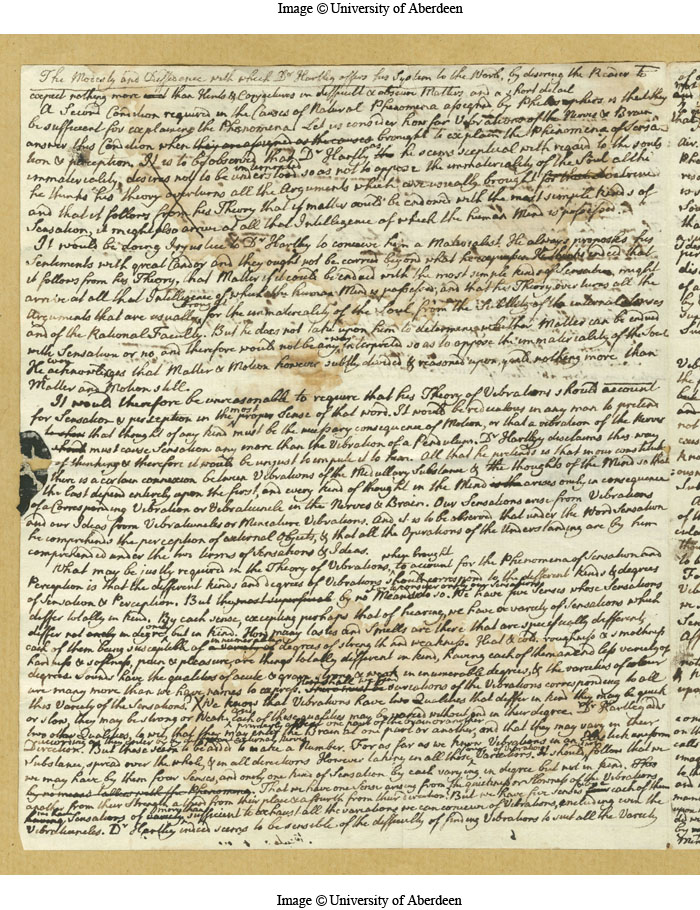 Image © University of Aberdeen
The Modesty and Diffidence with which Dr Hartley offers his System to the World, by desiring the Reader to
expect nothing more than Hints & Conjectures in difficult & obscure Matters and a short detail
A Second Condition required in the Causes of Natural Phenomena assigned by Philosophers is that they
be sufficient for explaining the Phenomena. Let us consider how far Vibrations of the Nerves & Brain
answer this Condition when brought to explain the Phenomena of Sensa
tion & perception. It is to be observed that Dr Hartley tho he seems sceptical with regard to the souls
immateriality, desires not to be interpreted so as not to oppose the immateriality of the Soul altho
he thinks his theory overturns all the Arguments which are usually brought
and that it follows from his Theory that if matter could be endowed with the most simple kinds of
Sensation, it might also arrive at all that Intelligence of which the human Mind is possessed.
It would be doing Injustice to Dr Hartley to conceive him a Materialist. He always proposes his
Sentiments with great Candor and they ought not be carried beyond what he
it follows from his Theory, that Matter if it could be endued with the most simple kinds of Sensation, might
arrive at all that Intelligence of which the human Mind is possessed, and that his Theory overturns all the
Arguments that are usually brought for the immateriality of the Soul from the Subtilty of the internal Senses
and of the Rational Faculty. But he does not take upon him to determine whether Matter can be endued
with Sensation or no, and therefore would not be any way interpreted so as to oppose the immateriality of the Soul
He acknowledges that Matter & Motion however subtly divided & reasoned upon, yield nothing more than
Matter and Motion still.
It would therefore be unreasonable to require that his Theory of Vibrations should account
for Sensation & perception in the most proper Sense of that word. It would be rediculous in any man to pretend
that thought of any kind must be the necessary consequence of Motion, or that a vibration of the Nerves
must cause Sensation any more than the Vibration of a Pendulum. Dr Hartley disclaims this way
of thinking & therefore it would be unjust to impute it to him. All that he pretends is that in our constitution
there is a certain connexion between Vibrations of the Medullary Substance & the thoughts of the Mind so that
the last depend entirely upon the first, and every kind of thought in the Mind arises only in consequence
of a Corresponding Vibration or Vibratiuncle in the Nerves & Brain. Our Sensations arise from Vibrations
and our Ideas from Vibratiuncles or Miniature Vibrations. And it is to be observed that under the Word Sensation
he comprehends the perception of external Objects, & that all the Operations of the Understanding are by him
comprehended under the two terms of Sensations & Ideas.
What may be justly required in the Theory of Vibrations, when brought to account for the Phenomena of Sensation and
Perception is that the different kinds and degrees of Vibrations should correspond to the different Kinds & degrees
of Sensation & Perception. But by no Means do so. We have five Senses whose Sensations
differ totally in kind. By each sense, excepting perhaps that of hearing, we have a variety of Sensations which
differ not only in degree but in kind. How many tastes and Smells are there that are specifically different,
each of them being susceptible of degrees of strength and weakness. Heat & cold, roughness & smothness
hardness & softness, pain & pleasure, are things totally different in kind, having each of them an endless variety of
degrees. Sounds have the qualities of acute & grave in innumerable degrees, & the varieties of colour
are many more than we have names to express. variations of the Vibrations corresponding to all
this Variety of the Sensations. We know that Vibrations have two Qualities that differ in kind they may be quick
or slow, they may be strong or Weak, each of these qualities may be varied without end in their degree. Dr Hartley adds
two other Qualities, to wit, that they may enter the Brain at one part or another, and that they may vary in their
Direction. But these seem to be added to make a Number. For as far as we know Vibrations in an uniform
Substance, spread over the whole, & in all directions. However taking in all these Varieties, it should follow that we
may have by them four Senses, and only one kind of Sensation by each varying in degree but not in kind.
That we have one Sense arising from the quickness or slowness of the Vibrations
another from their Strength a third from their place & a fourth from their direction. But we have five senses & each of them
having Sensations of variety sufficient to exhaust all the variations we can conceive of Vibrations, including even the
Vibratiuncles. Dr Hartley indeed seems to be sensible of the difficulty of finding Vibrations to suit all the Variety
Image © University of Aberdeen